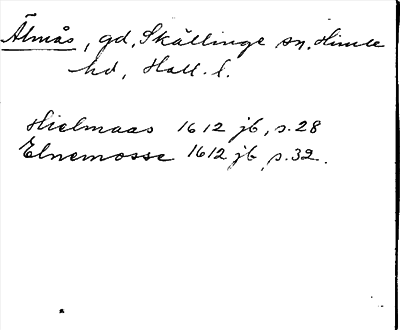 Älmås, gd, Skällinge sn, Himle
hd, Hall. l.
Hielmaas 1612 jb, s. 28
Elnemosse 1612 jb, s. 32.